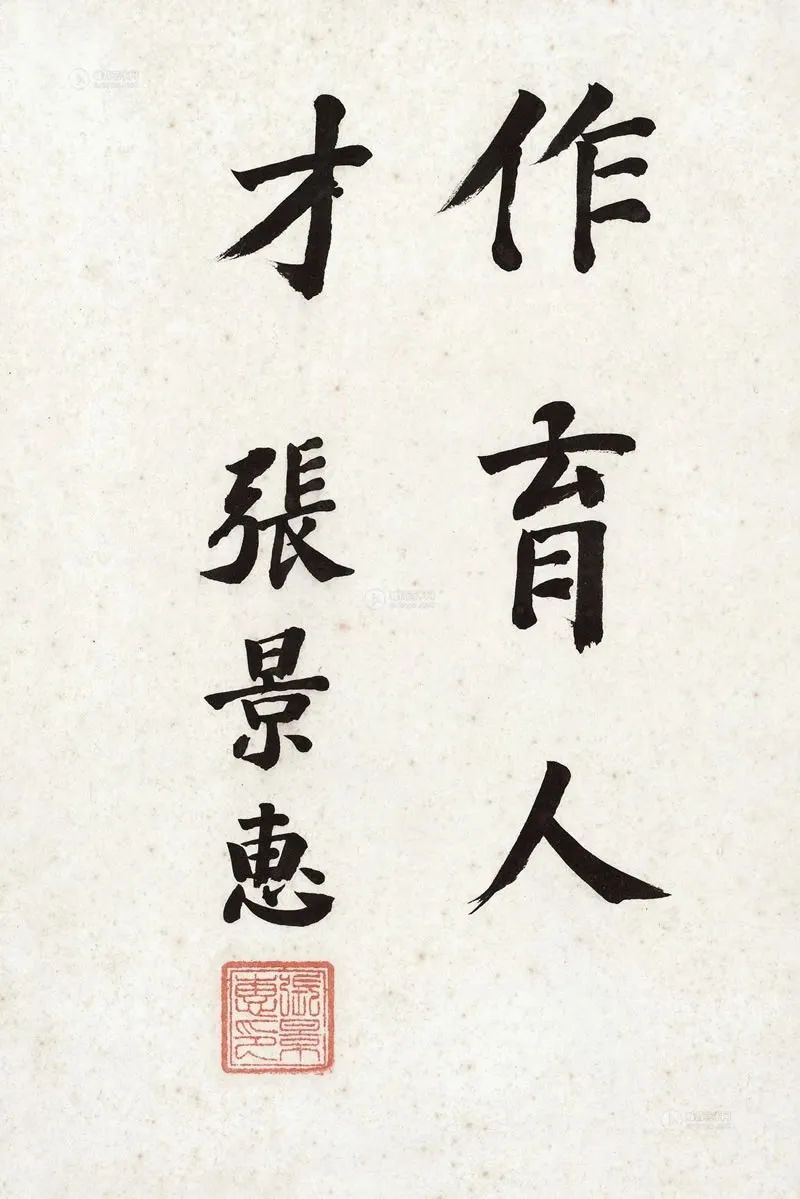 作育人
才 張景惠
張景惠印